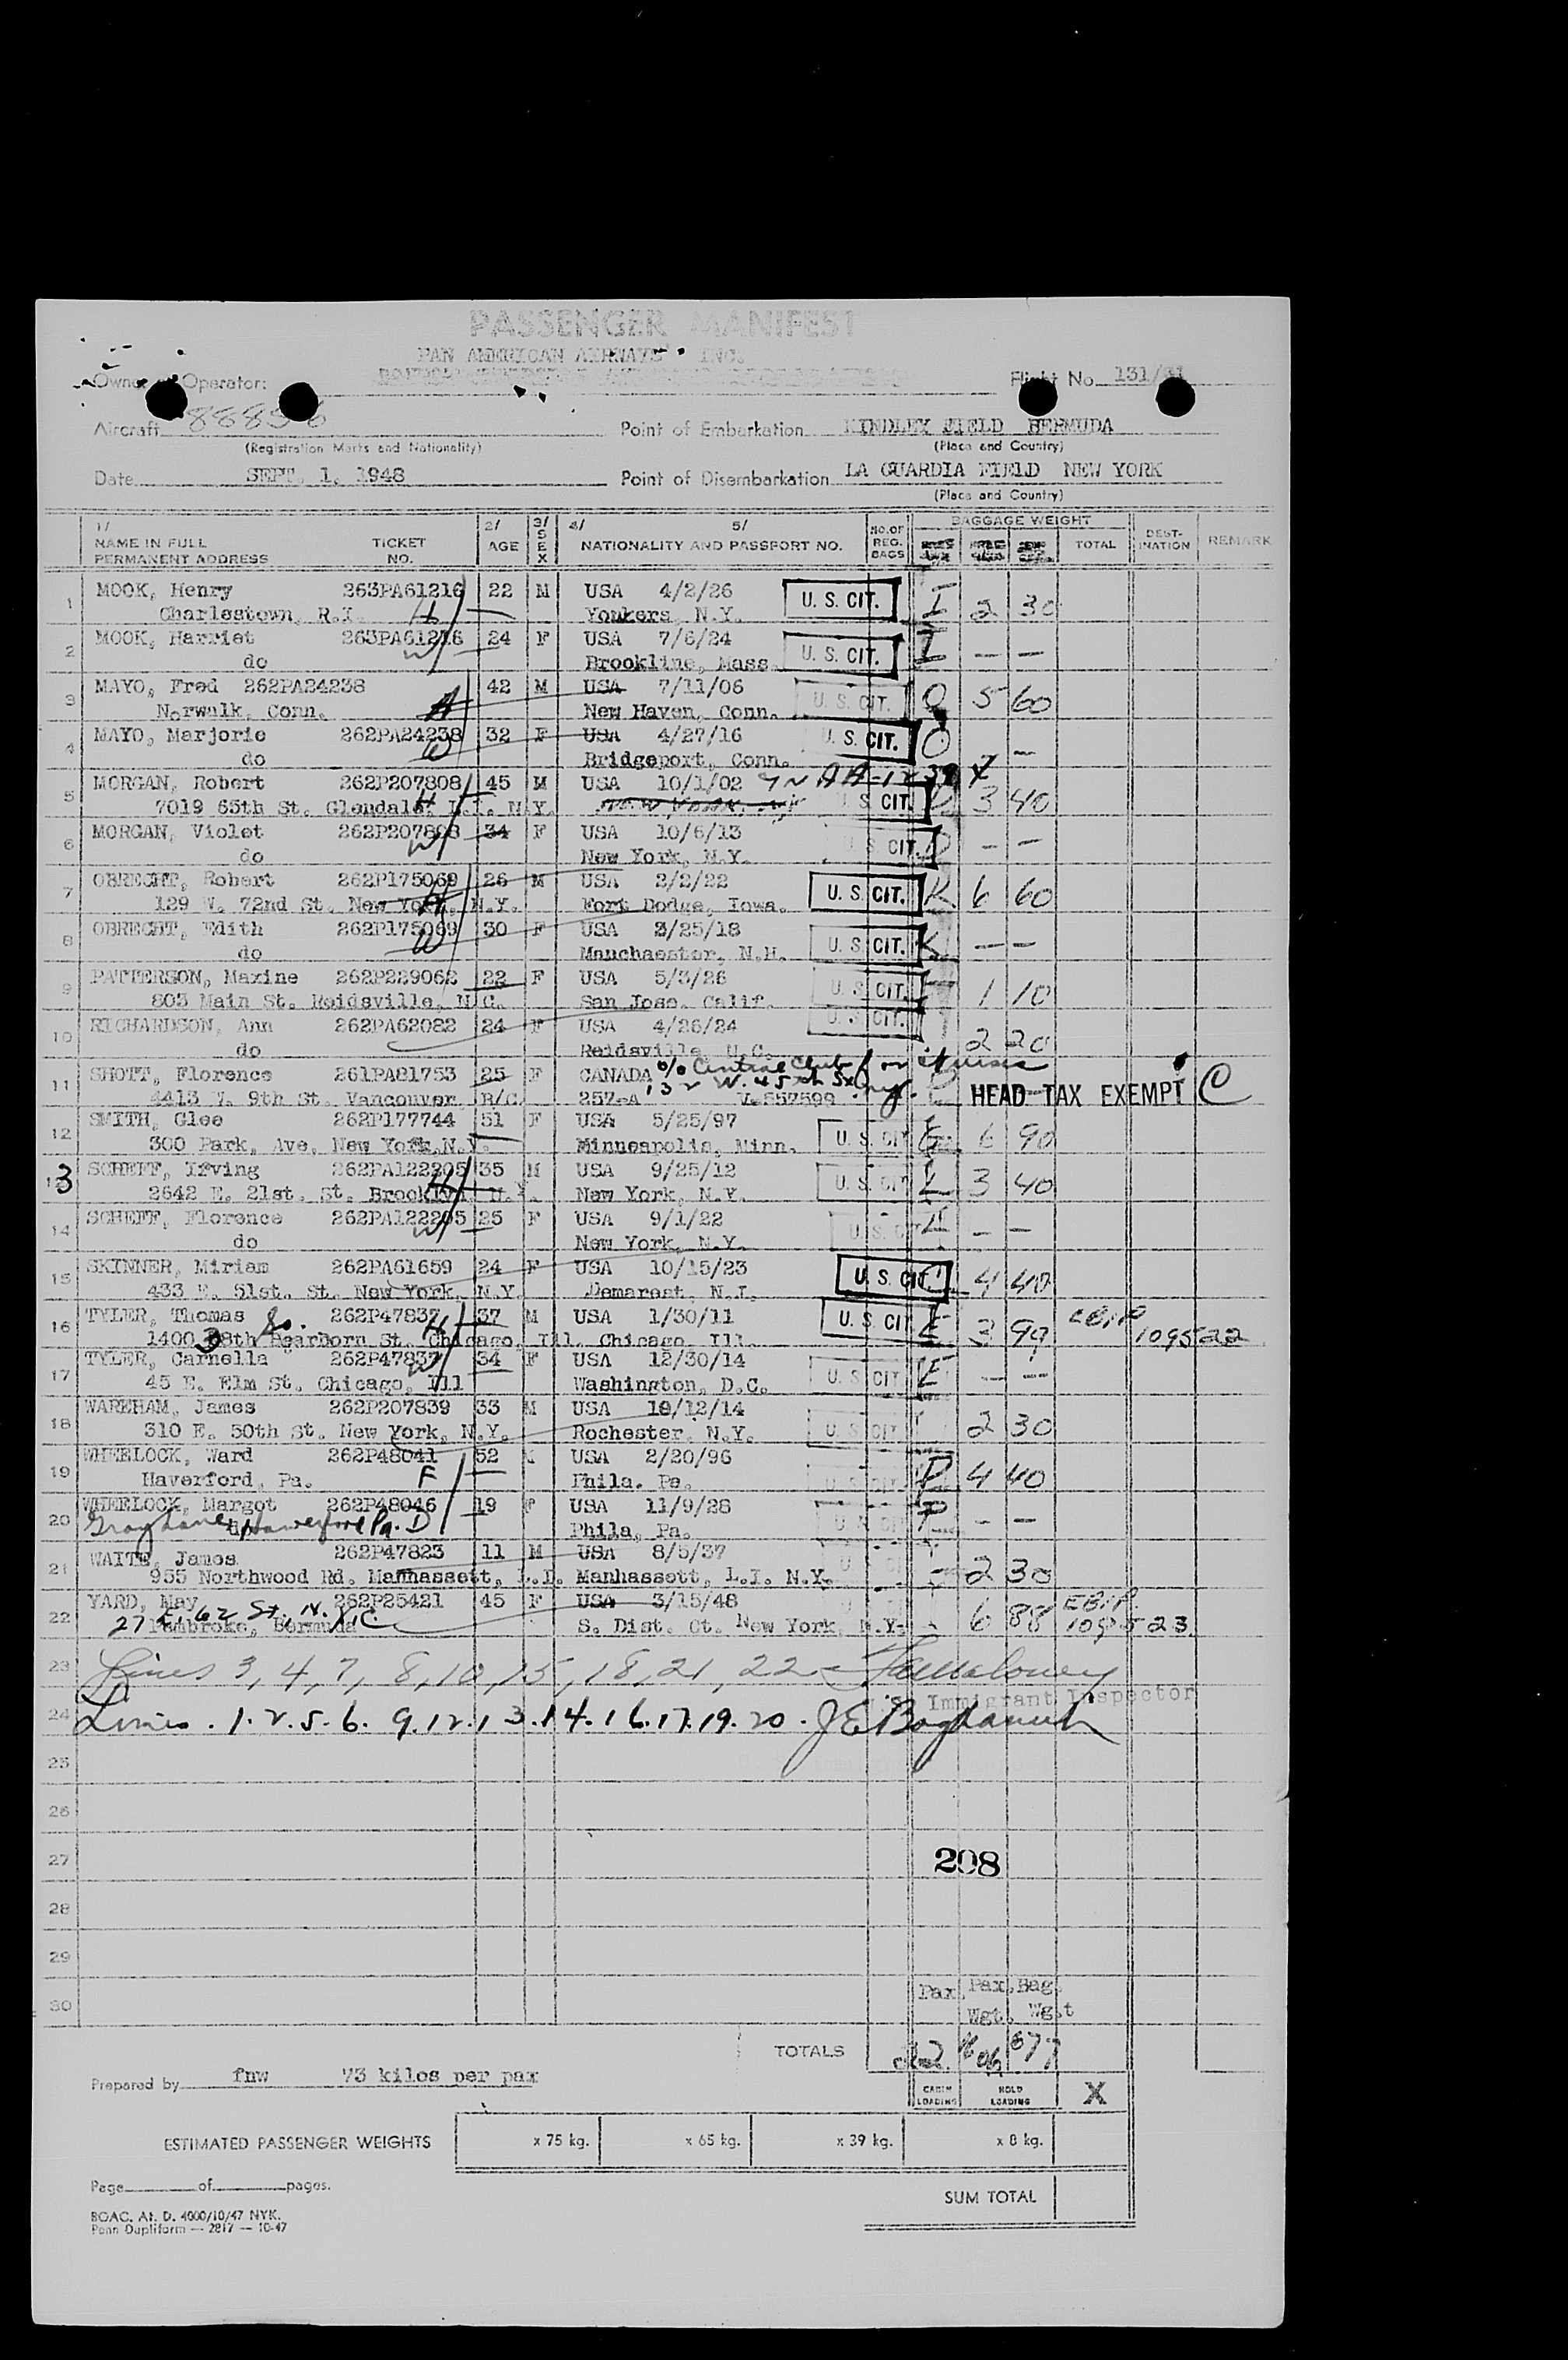 PASSENGER MANIFEST
PAN AMERICAN AIRWAYS INC.
Owner Operator: Flight No. 131/31
Aircraft 88856 Point of Embarkation KINDLEY FIELD BERMUDA
(Registration Marks and Nationality) (Place and Country)
Date SEPT. 1, 1948 Point of Disembarkation LA GUARDIA FIELD NEW YORK
(Place and Country)
1/ 2/ 3/ 4/ 5/ NO. OF REG. BAGS BAGGAGE WEIGHT DEST-INATION REMARK
NAME IN FULL TICKET AGE SEX NATIONALITY AND PASSPORT NO. TOTAL
PERMANENT ADDRESS NO.
1 MOOK, Henry 263PA61216 22 M USA 4/2/26 U. S. CIT. I 2 30
Charlestown, R.I. H Yonkers, N.Y.
2 MOOK, Harriet 263PA61216 24 F USA 7/6/24 U. S. CIT. I — —
do W Brookline, Mass.
3 MAYO, Fred 262PA24238 42 M USA 7/11/06 U. S. CIT. O 5 60
Norwalk, Conn. H New Haven, Conn.
4 MAYO, Marjorie 262PA24238 32 F USA 4/27/16 U. S. CIT. O —
do W Bridgeport, Conn.
5 MORGAN, Robert 262P207808 45 M USA 10/1/02 U. S. CIT. 3 40
7019 65th St. Glendale, L.I. N.Y. H
6 MORGAN, Violet 262P207808 34 F USA 10/6/13 U. S. CIT. — —
do W New York, N.Y.
7 OBRECHT, Robert 262P175069 26 M USA 2/2/22 U. S. CIT. K 6 60
129 W. 72nd St. New York, N.Y. H Fort Dodge, Iowa.
8 OBRECHT, Edith 262P175069 30 F USA 3/25/18 U. S. CIT. K — —
do W Manchaester, N.H.
9 PATTERSON, Maxine 262P229062 22 F USA 5/3/26 U. S. CIT. 1 10
803 Main St. Reidsville, N.C. San Jose, Calif.
10 RICHARDSON, Ann 262PA62082 24 F USA 4/26/24 U. S. CIT. 2 20
do Reidsville, N.C.
11 SHOTT, Florence 261PA81753 25 F CANADA % Central Club for Nurses
4413 W. 9th St. Vancouver, B/C. 257-A 132 W. 45th St NY. HEAD TAX EXEMPT C
12 SMITH, Glee 262P177744 51 F USA 5/25/97 U. S. CIT 6 90
300 Park, Ave, New York, N.Y. Minneapolis, Minn.
13 SCHEFF, Irving 262PA122205 35 M USA 9/25/12 U. S. CIT L 3 40
2642 E. 21st. St. Brooklyn, N.Y. H New York, N.Y.
14 SCHEFF, Florence 262PA122205 25 F USA 9/1/22 U. S. C — —
do W New York, N.Y.
15 SKINNER, Miriam 262PA61659 24 F USA 10/15/23 U. S. CIT 4 40
433 E. 51st. St. New York, N.Y. Demarest, N.J.
16 TYLER, Thomas 262P47837 37 M USA 1/30/11 U. S. CIT E 3 99 109522
1400 38th So. Dearborn St. Chicago, Ill. H Chicago, Ill.
17 TYLER, Carnella 262P47837 34 F USA 12/30/14 U. S. CIT E — —
45 E. Elm St. Chicago, Ill W Washington, D.C.
18 WAREHAM, James 262P207839 33 M USA 10/12/14 U. S. CIT 2 30
310 E. 50th St. New York, N.Y. Rochester, N.Y.
19 WHEELOCK, Ward 262P48041 52 USA 2/20/96 P 4 40
Haverford, Pa. F Phila. Pa.
20 WHEELOCK, Margot 262P48046 19 F USA 11/9/28 P — —
Gray Lane Haverford Pa. D Phila, Pa.
21 WAITE, James 262P47823 11 M USA 8/5/37 2 30
955 Northwood Rd. Manhassett, L.I. Manhassett, L.I. N.Y.
22 YARD, May 262P25421 45 F USA 3/15/48 6 88 109523
27 E. 62 St., N.Y.C. Pembroke, Bermuda S. Dist. Ct. New York, N.Y.
23 Lines 3, 4, 7, 8, 10, 15, 18, 21, 22
Immigrant Inspector
24 Lines . 1. 2. 5. 6. 9. 12. 13. 14. 16. 17. 19. 20.
25
26
27 208
28
29
30 Pax Pax Bag
Wgt. Wg.t
TOTALS 877
Prepared by fnw 73 kilos per pax
CABIN LOADING HOLD LOADING X
ESTIMATED PASSENGER WEIGHTS x 75 kg. x 65 kg. x 39 kg. x 8 kg.
Page of pages.
SUM TOTAL
BOAC. At. D. 4000/10/47 NYK.
Penn Dupliform — 2817 — 10-47